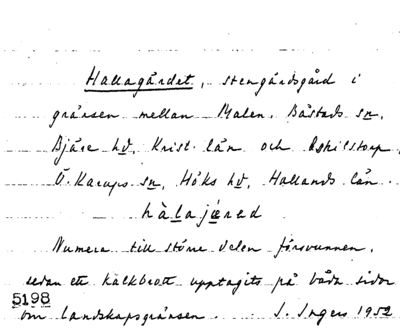 Hallagärdet, stengärdsgård i
gränsen mellan Malen, Båstads sn,
Bjäre hd, Krist. län och Eskilstorp,
Ö. Karups sn, Höks hd, Hallands län.
hàlajæred
Numera till större delen försvunnen,
sedan ett kalkbrott upptagits på båda sidor
5198
om landskapsgränsen. I. Ingers 1952